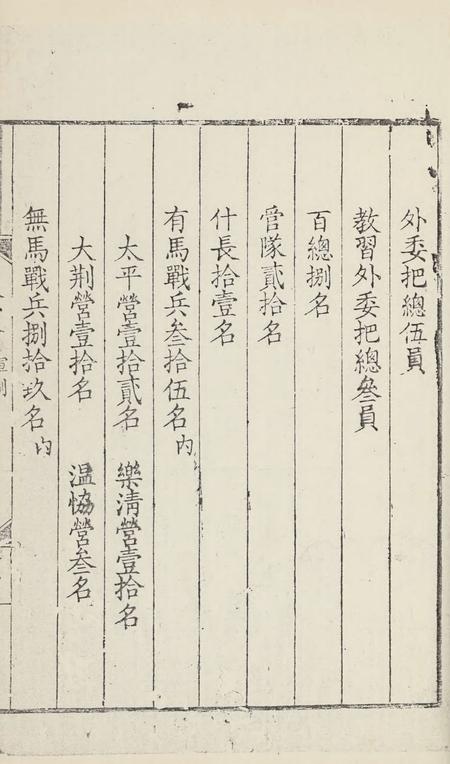 外委把總伍員
教習外委把總叄員
百總捌名
管隊貳拾名
什長拾壹名
有馬戰兵叄拾伍名內
太平營壹拾貳名 樂清營壹拾名
大荆營壹拾名 温協營叄名
無馬戰兵捌拾玖名內